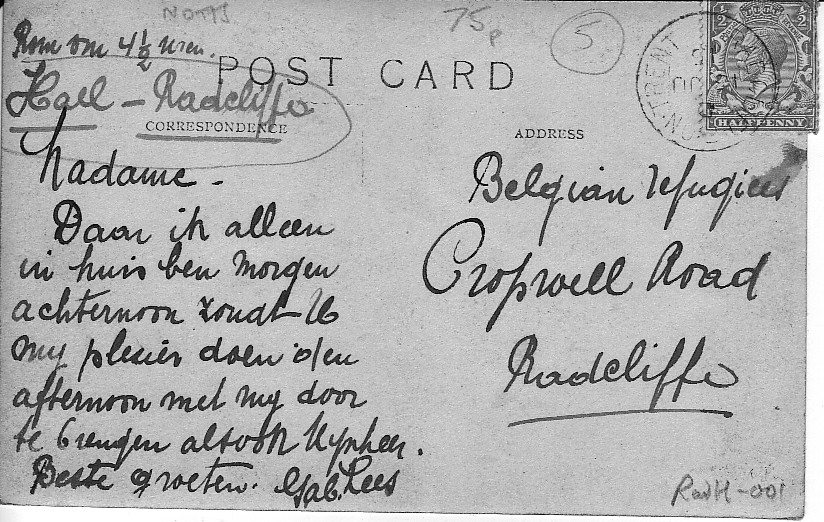 NOTTS
75p
5
Kom om 4½ uren.
Hall - Radcliffe
POST CARD
CORRESPONDENCE
ADDRESS
HALFPENNY
Madame -
Daar ik alleen
in huis ben morgen
achternoon zoudt U
my plesier doen den
afternoon met my door
te brengen alsook Mynheer.
Beste groeten. Gab. Lees
Belgian refugiees
Cropwell Road
Radcliffe
RadH-001